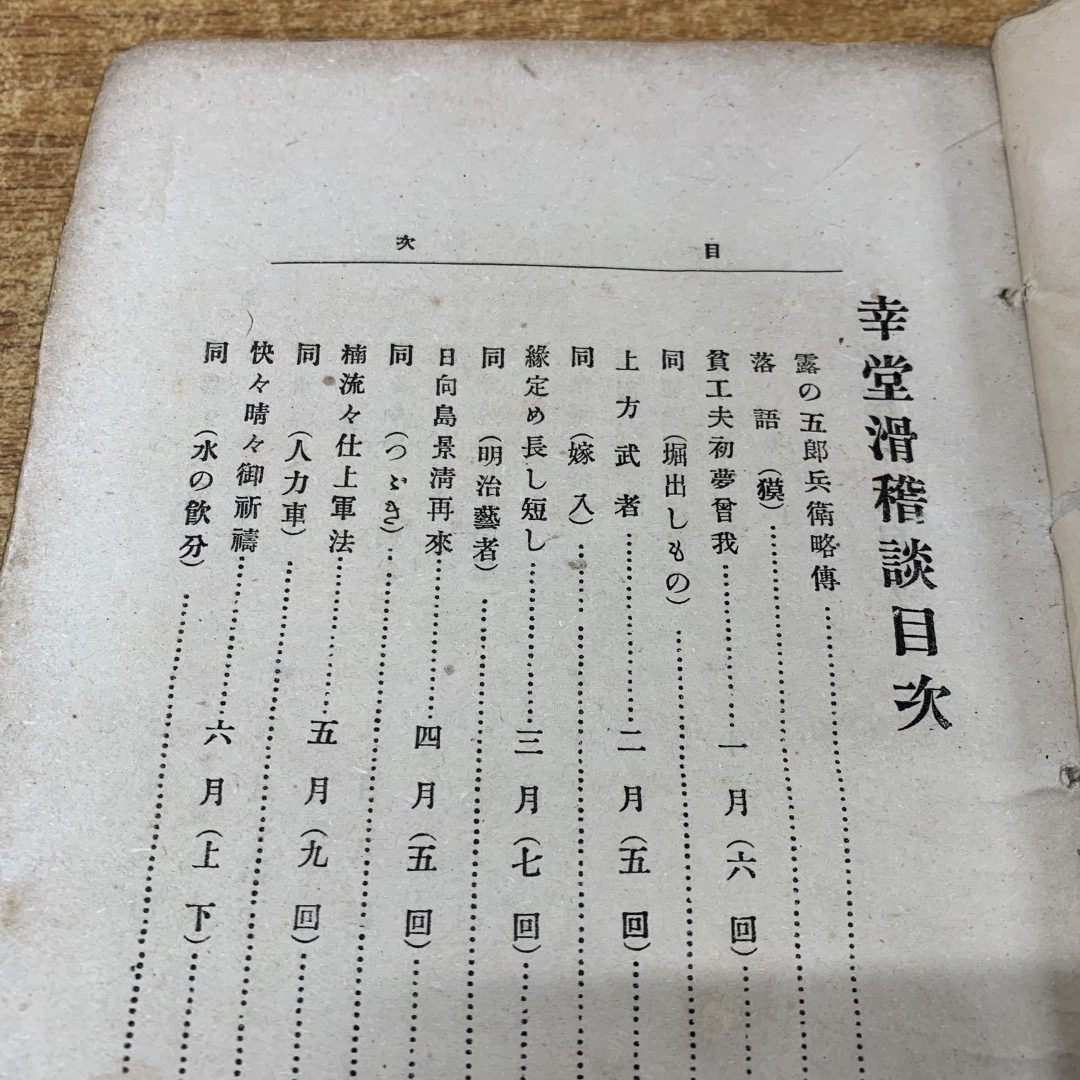 幸堂滑稽談目次
目次
露の五郎兵衛略傳
落語（獏）
貧工夫初夢曾我 一月（六回）
同（堀出しもの）
上方武者 二月（五回）
同（嫁入）
緣定め長し短し 三月（七回）
同（明治藝者）
日向島景淸再來 四月（五回）
同（つゞき）
楠流々仕上軍法 五月（九回）
同（人力車）
快々晴々御祈禱 六月（上下）
同（水の飮分）